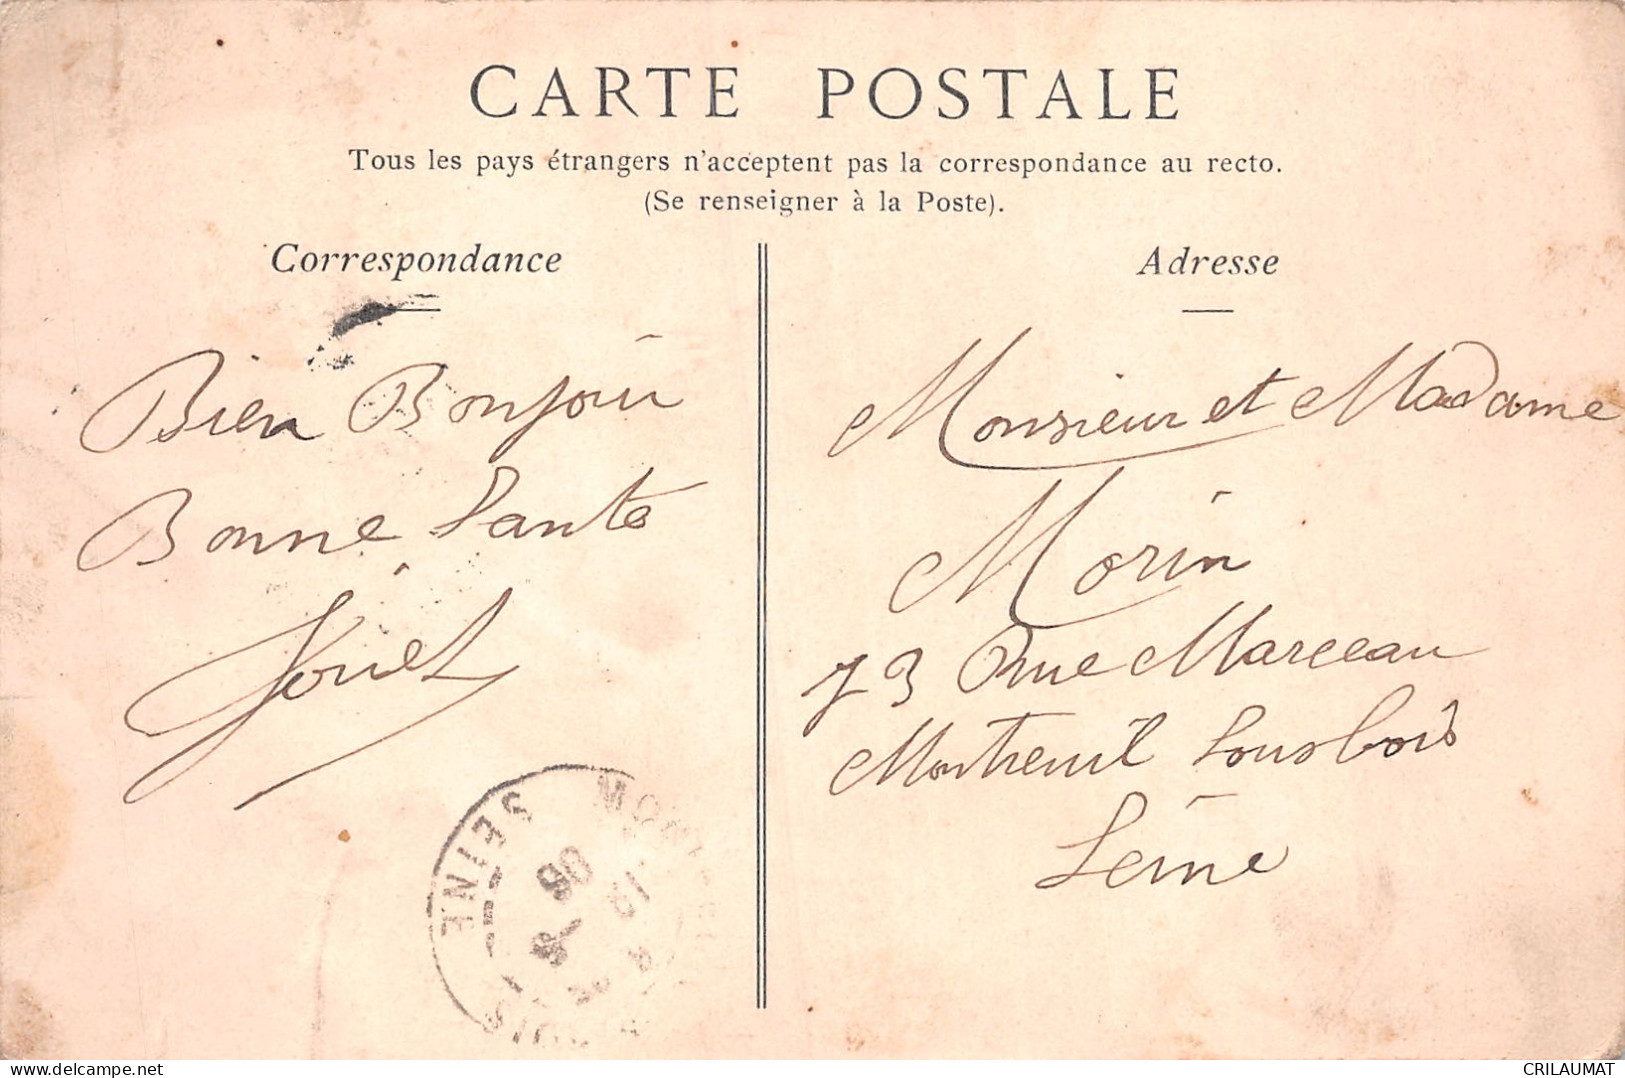 CARTE POSTALE
Tous les pays étrangers n'acceptent pas la correspondance au recto.
(Se renseigner à la Poste).
Correspondance
Adresse
Bien Bonjour
Bonne Sante
Monsieur et Madame
Morin
73 Rue Marceau
Montreuil Sous bois
Seine
SEINE
delcampe.net
CRILAUMAT